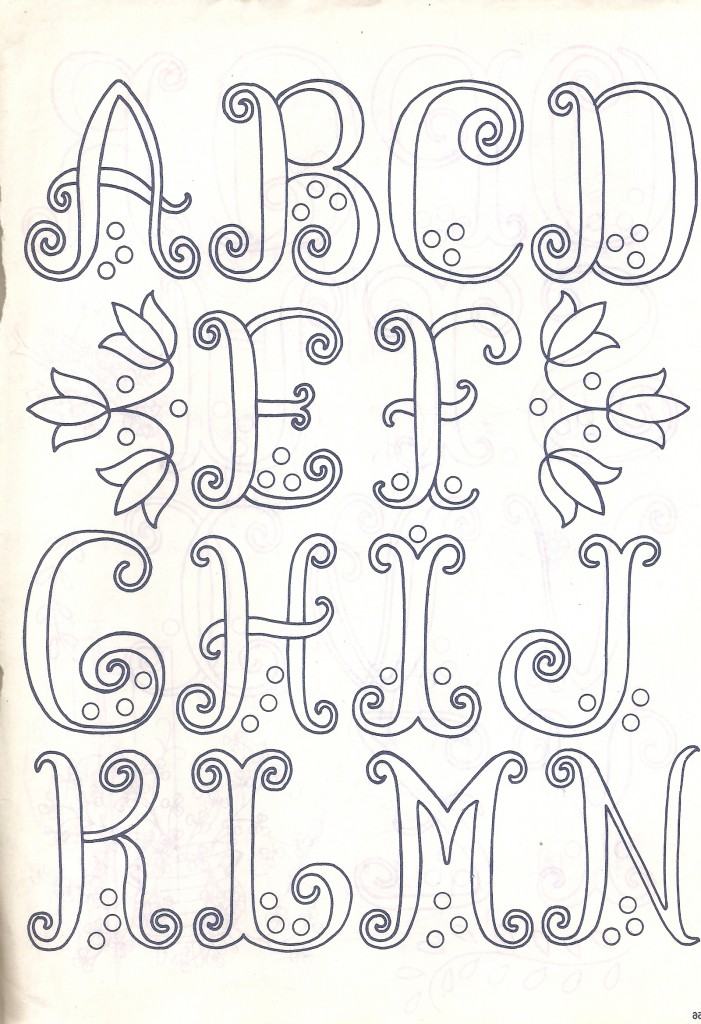 A B C D
E F
G H I J
K L M N